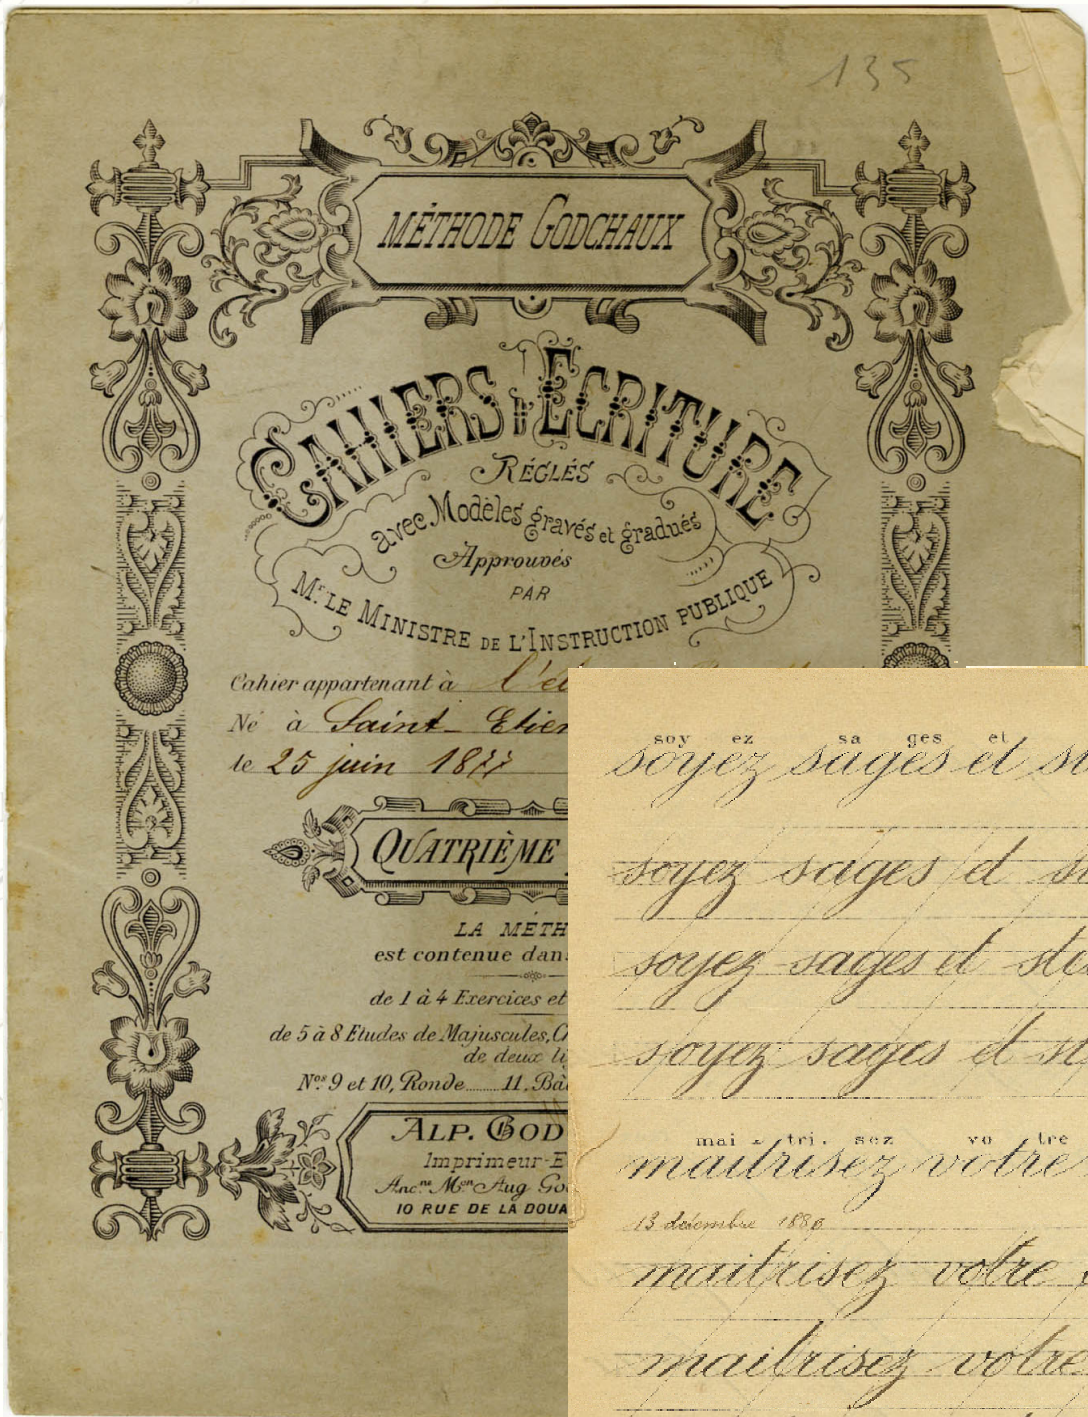 135
MÉTHODE GODCHAUX
CAHIERS D'ECRITURE
RÉGLÉS
avec Modèles gravés et gradués
Approuvés
PAR
Mr. LE MINISTRE DE L'INSTRUCTION PUBLIQUE
Cahier appartenant à
Né à Saint-Etien
le 25 juin 1877
QUATRIÈME
LA MÉTH
est contenue dans
de 1 à 4 Exercices et
de 5 à 8 Etudes de Majuscules,
de deux li
Nos. 9 et 10, Ronde......11. Bâ
ALP. GOD
Imprimeur-E
Ancne. Mon Aug Go
10 RUE DE LA DOUA
soy ez sa ges et
soyez sages et st
soyez sages et st
soyez sages et stu
soyez sages et st
mai - tri. sez vo tre
maitrisez votre
13 décembre 1880
maitrisez votre
maitrisez votre